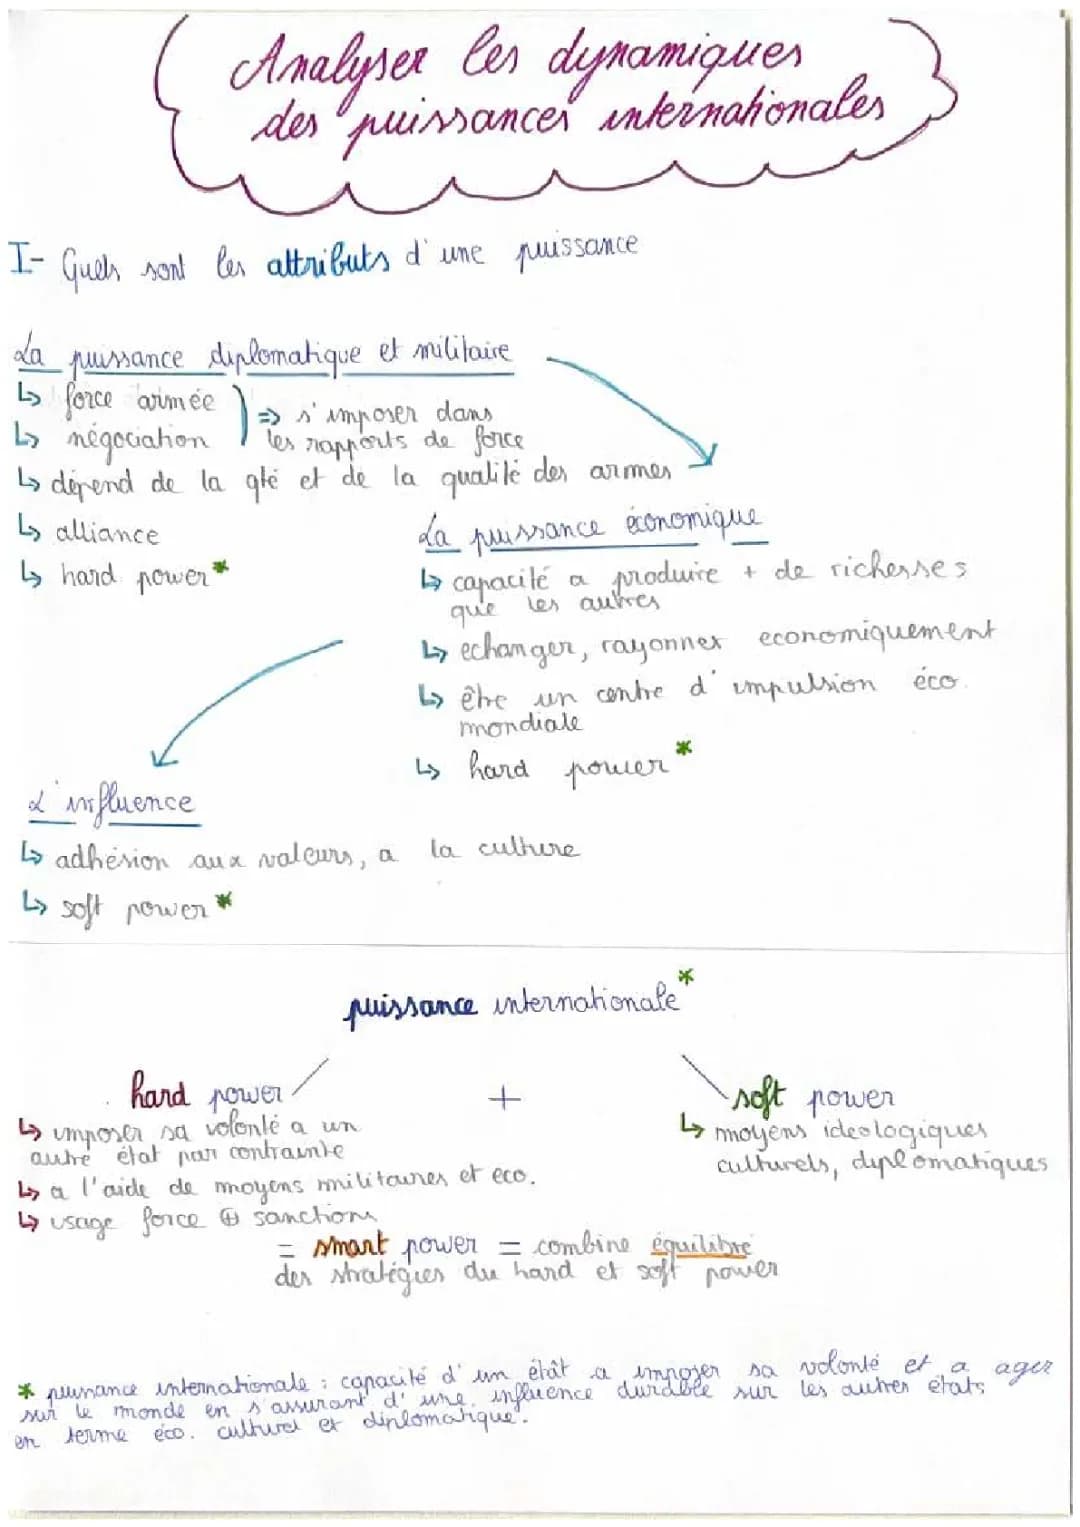 Analyser les dynamiques
des puissances internationales
I- Quels sont les attributs d'une puissance
La puissance diplomatique et militaire
↳ force armée
↳ négociation
⇒ s'imposer dans
les rapports de force
↳ dépend de la qté et de la qualité des armes
↳ alliance
↳ hard power*
La puissance économique
↳ capacité a produire + de richesses
que les autres
↳ echanger, rayonner economiquement
↳ être un centre d'impulsion éco.
mondiale
↳ hard power*
L'influence
↳ adhésion aux valeurs, a la culture
↳ soft power*
puissance internationale*
hard power
+
soft power
↳ imposer sa volonté a un
autre état par contrainte
↳ a l'aide de moyens militaires et eco.
↳ usage force ⊕ sanctions
↳ moyens ideologiques
culturels, diplomatiques
= smart power = combine équilibre
des stratégies du hard et soft power
* puissance internationale : capacité d'un étât a imposer sa volonté et a agir
sur le monde en s'assurant d'une influence durable sur les autres états
en terme éco. culturel et diplomatique.